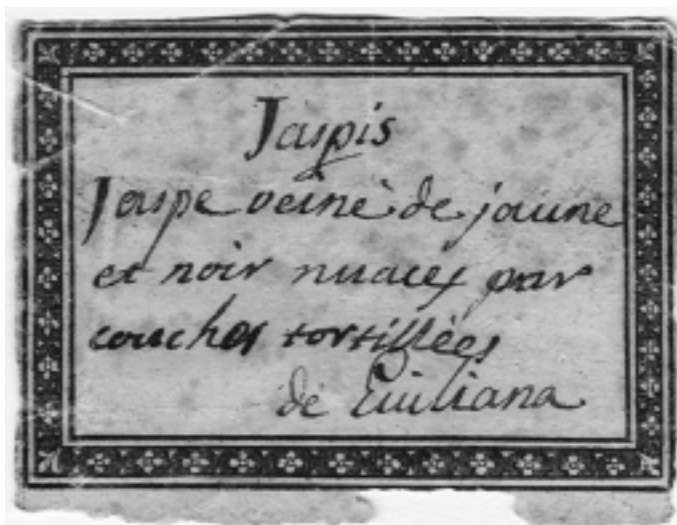 Jaspis
Jaspe veiné de jaune
et noir nuacez par
couches tortillées
de